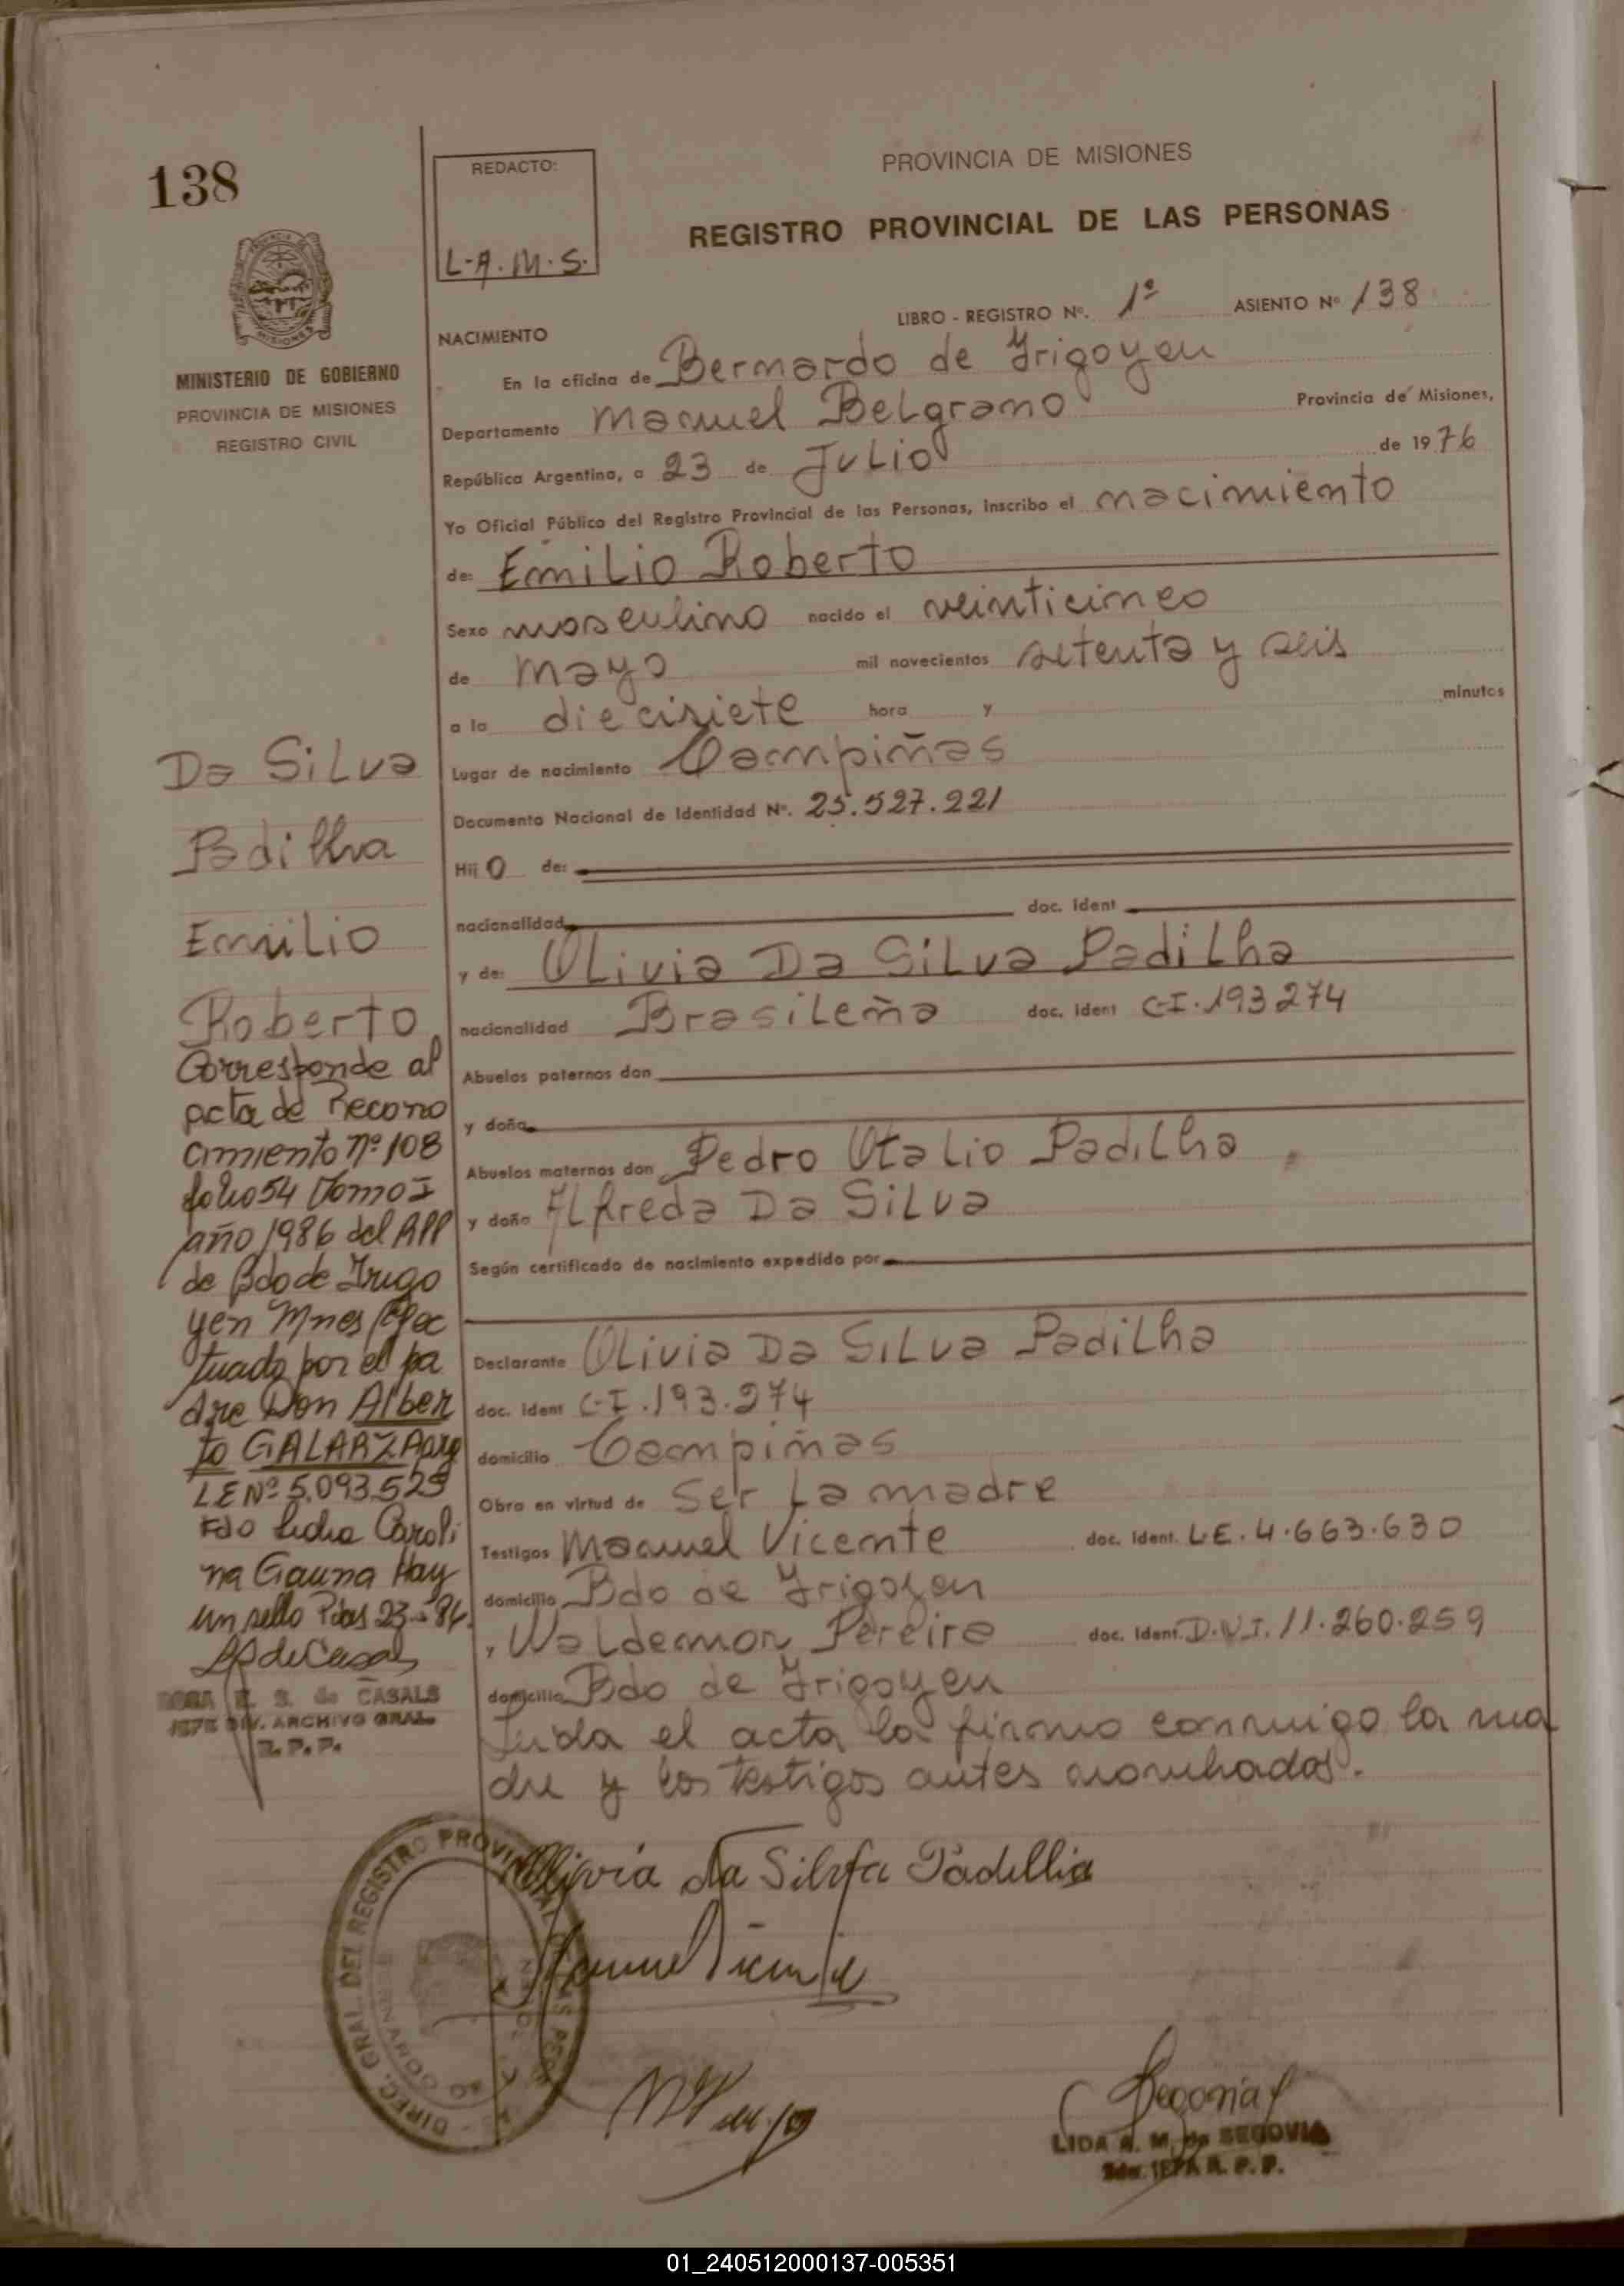 138
REDACTO:
L-A.M.S.
PROVINCIA DE MISIONES
REGISTRO PROVINCIAL DE LAS PERSONAS
MINISTERIO DE GOBIERNO
PROVINCIA DE MISIONES
REGISTRO CIVIL
LIBRO - REGISTRO Nº. 1º ASIENTO Nº 138
NACIMIENTO
En la oficina de Bernardo de Irigoyen
Departamento Manuel Belgrano Provincia de Misiones,
República Argentina, a 23 de Julio de 1976
Yo Oficial Público del Registro Provincial de las Personas, inscribo el nacimiento
de: Emilio Roberto
Sexo masculino nacido el veinticinco
de mayo mil novecientos setenta y seis
a la diecisiete hora y minutos
Lugar de nacimiento Campiñas
Documento Nacional de Identidad Nº. 25.527.221
Hij O de:
nacionalidad doc. ident
y de: Olivia Da Silva Padilha
nacionalidad Brasileña doc. ident C-I.193274
Abuelos paternos don
y doña
Abuelos maternos don Pedro Otalio Padilha
y doña Alfreda Da Silva
Según certificado de nacimiento expedido por
Declarante Olivia Da Silva Padilha
doc. ident C-I.193.274
domicilio Campiñas
Obra en virtud de Ser La madre
Testigos Manuel Vicente doc. Ident. L.E.4.663.630
domicilio Bdo de Irigoyen
, Waldemon Pereira doc. Ident. D.N.I. 11.260.259
domicilio Bdo de Irigoyen
Leida el acta la firma conmigo la ma
dre y los testigos antes nombrados.
Da Silva
Padilha
Emilio
Roberto
Corresponde al
acta de Recono
cimiento nº 108
folio 54 Tomo I
año 1986 del RPP
de Bdo de Irigo
yen Mnes efec
tuado por el pa
dre Don Alber
to GALARZA arg
LE Nº 5.093.525
Fdo Lidia Caroli
na Gauna Hay
un sello Pdas 23
E. S. de CASALS
JEFE DIV. ARCHIVO GRAL.
R. P. P.
DIREC. GRAL DEL REGISTRO PROVINCIAL
Olivia da Silva Padillia
Manuel Vicente
Segovia
LIDA A. M. de SEGOVIA
JEFA R. P. P.
01_240512000137-005351